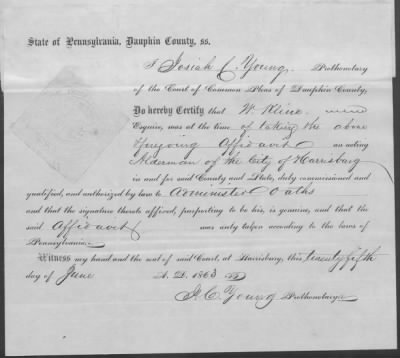 State of Pennsylvania, Dauphin County, ss.
I Josiah C. Young, Prothonotary
of the Court of Common Pleas of Dauphin County,
Do hereby Certify that W. Kline
Esquire, was at the time of taking the above
foregoing Affidavit an acting
Alderman of the City of Harrisburg
in and for said County and State, duly commissioned and
qualified, and authorized by law to Administer Oaths
and that the signature thereto affixed, purporting to be his, is genuine, and that the
said Affidavit was duly taken according to the laws of
Pennsylvania.
Witness my hand and the seal of said Court, at Harrisburg, this twenty fifth
day of June A. D. 1863
J. C. Young Prothonotary